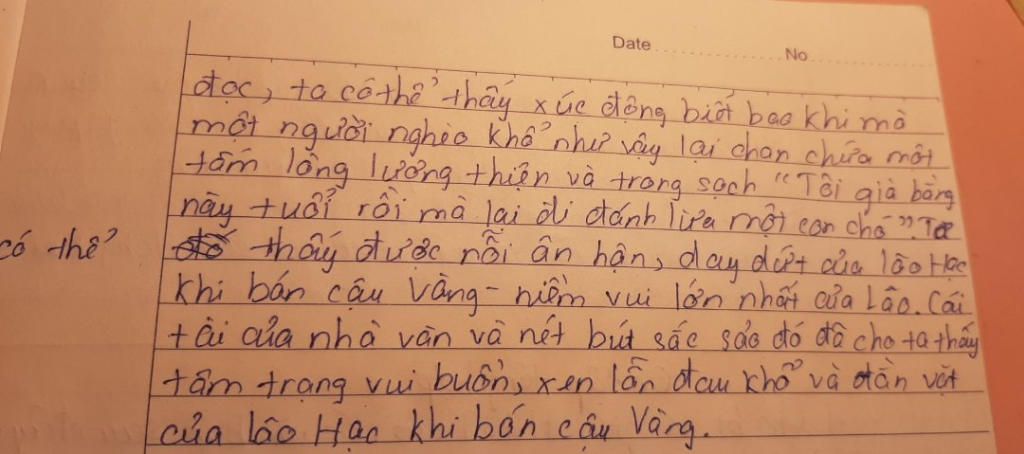 Date No
đọc, ta có thể thấy xúc động biết bao khi mà
một người nghèo khổ như vậy lại chan chứa một
tấm lòng lương thiện và trong sạch "Tôi già bằng
này tuổi rồi mà lại đi đánh lừa một con chó". Ta
có thể thấy được nỗi ân hận, day dứt của lão Hạc
khi bán cậu Vàng - niềm vui lớn nhất của Lão. Cái
tài của nhà văn và nét bút sắc sảo đó đã cho ta thấy
tâm trạng vui buồn, xen lẫn đau khổ và dằn vặt
của lão Hạc khi bán cậu Vàng.